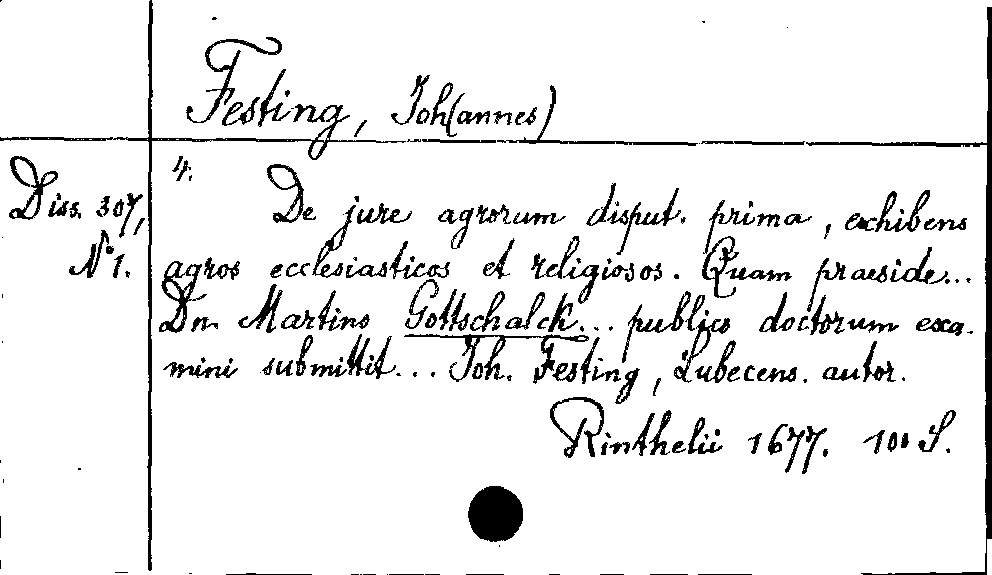 Festing, Joh(annes)
4.
Diss. 307,
N° 1.
De jure agrorum disput. prima, exhibens
agros ecclesiasticos et religiosos. Quam praeside...
Dn. Martino Gottschalck... publico doctorum exa-
mini submittit... Joh. Festing, Lubecens. autor.
Rinthelii 1677. 100 S.